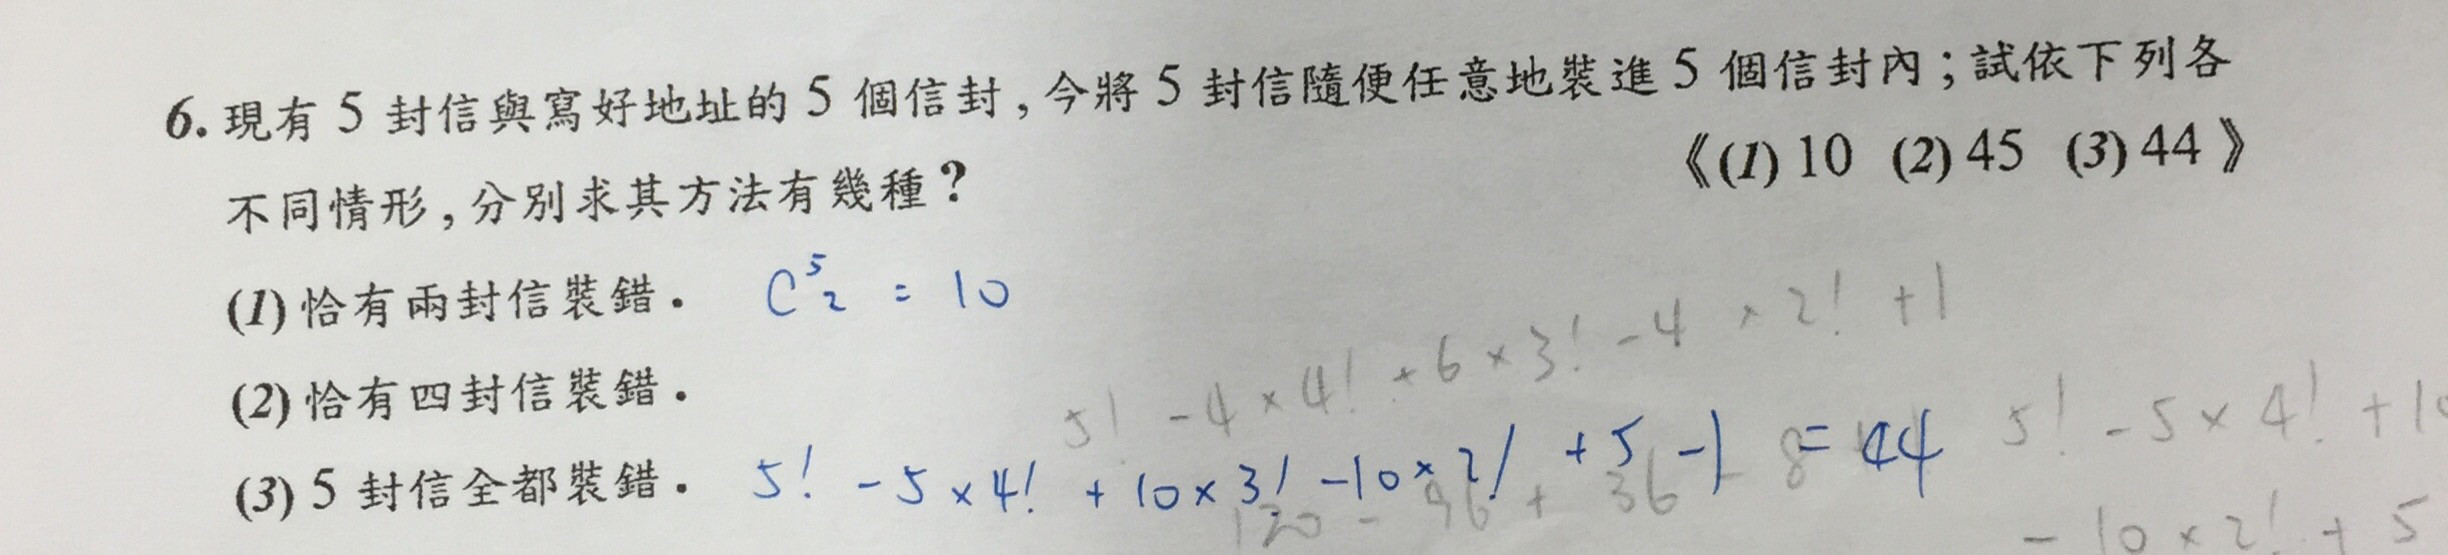 6. 現有 5 封信與寫好地址的 5 個信封,今將 5 封信隨便任意地裝進 5 個信封內;試依下列各
不同情形,分別求其方法有幾種?
《(1) 10 (2) 45 (3) 44》
(1) 恰有兩封信裝錯. C⁵₂ = 10
5! - 4 × 4! + 6 × 3! - 4 × 2! + 1
(2) 恰有四封信裝錯.
5! - 5 × 4! + 10
(3) 5 封信全都裝錯. 5! - 5 × 4! + 10 × 3! - 10 × 2! + 5 - 1 = 44
120 - 96 + 36 - 8
- 10 × 2! + 5